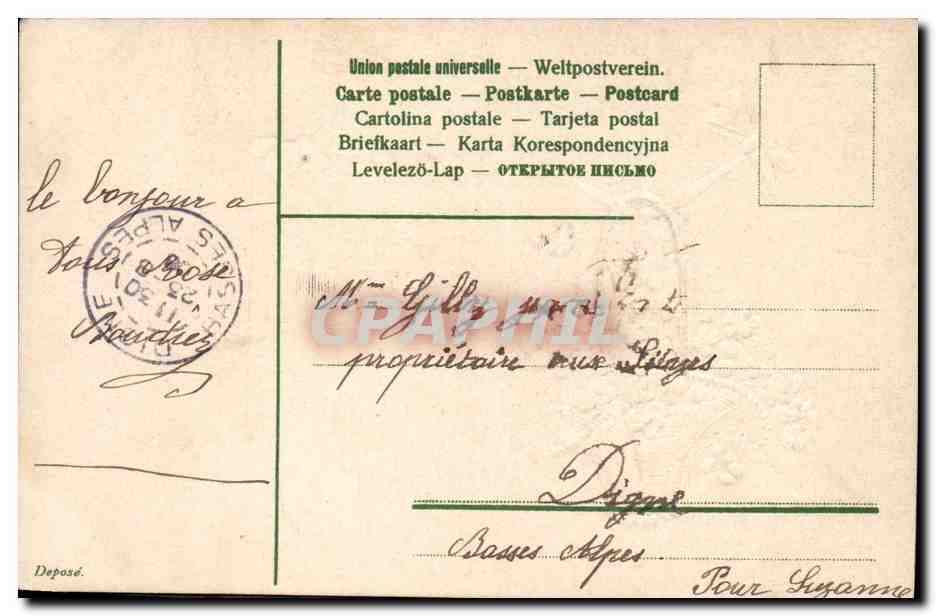 Union postale universelle — Weltpostverein.
Carte postale — Postkarte — Postcard
Cartolina postale — Tarjeta postal
Briefkaart — Karta Korespondencyjna
Levelező-Lap — ОТКРЫТОЕ ПИСЬМО
le bonjour a
tous Rose
DIGNE
BASSES ALPES
11 30
23
8
Mme Gilly
propriétaire aux Sièyes
CPAPHIL
Digne
Basses Alpes
Pour Suzanne
Deposé.